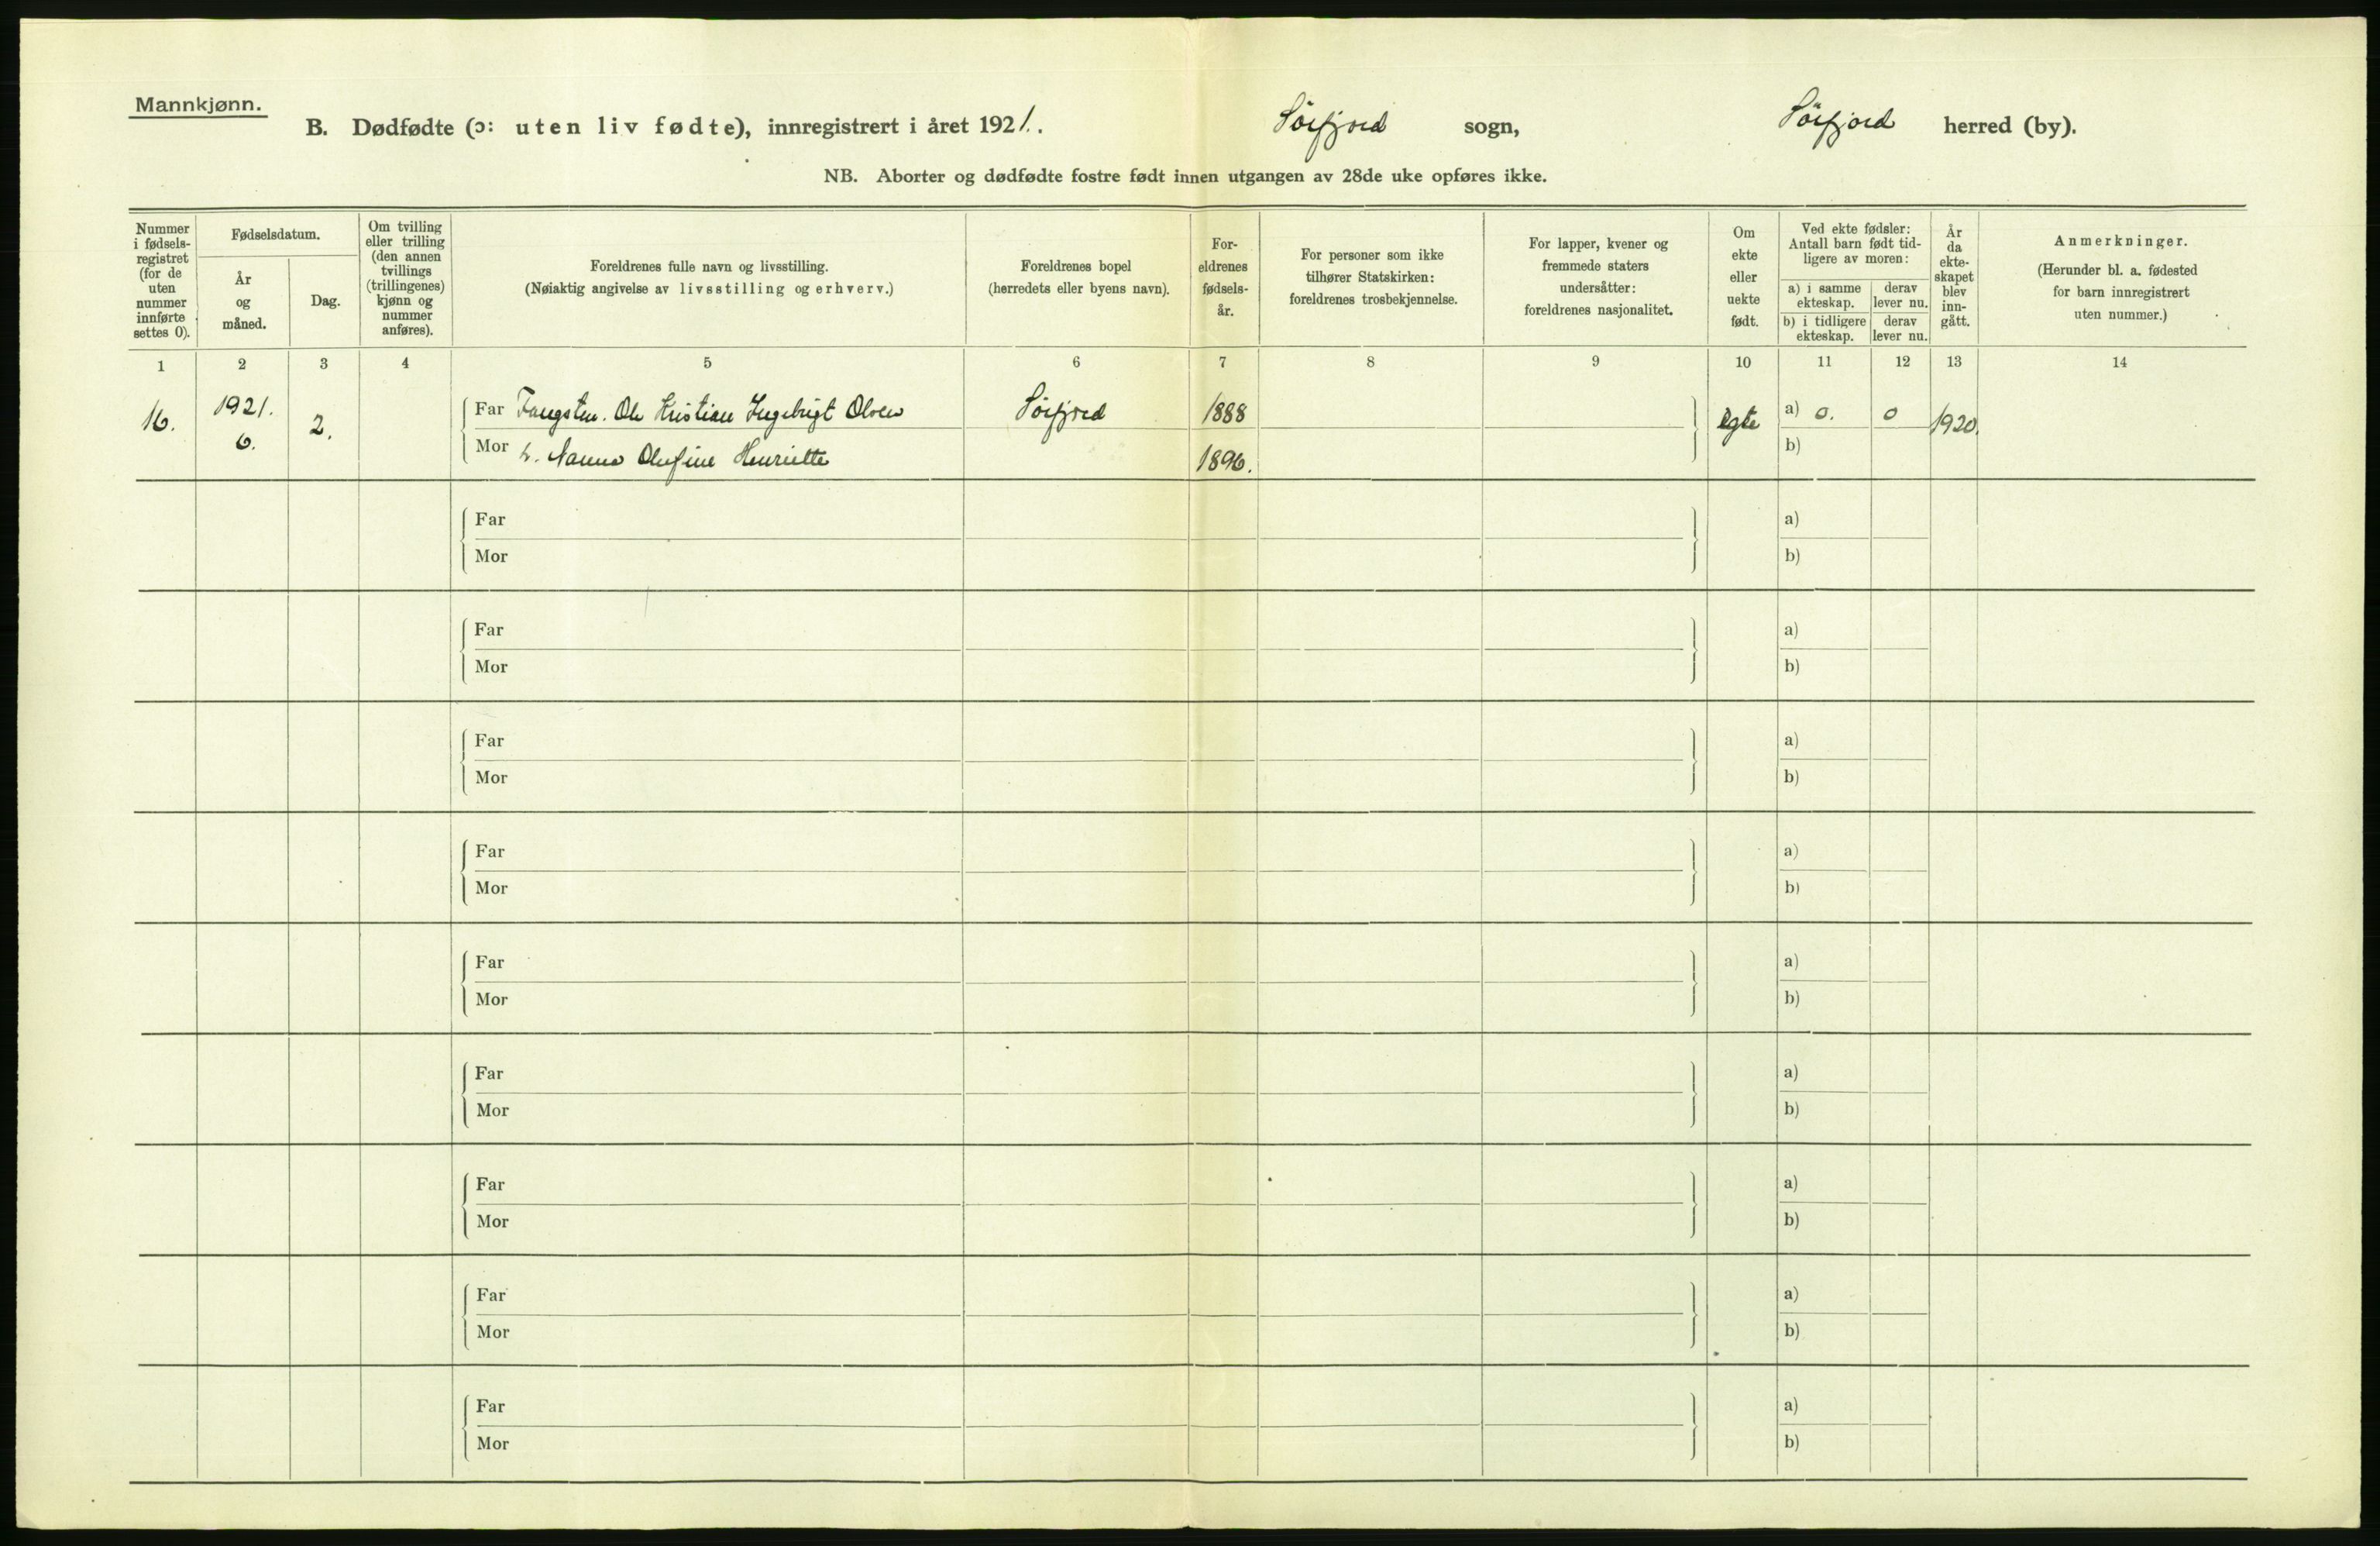 Mannkjønn.
B. Dødfødte (ɔ: uten liv fødte), innregistrert i året 1921. Sörfjord sogn, Sörfjord herred (by).
NB. Aborter og dødfødte fostre født innen utgangen av 28de uke opføres ikke.
Nummer
i fødsels-
registret
(for de
uten
nummer
innførte
settes 0).
Fødselsdatum.
År
og
måned.
Dag.
Om tvilling
eller trilling
(den annen
tvillings
(trillingenes)
kjønn og
nummer
anføres).
Foreldrenes fulle navn og livsstilling.
(Nøiaktig angivelse av livsstilling og erhverv.)
Foreldrenes bopel
(herredets eller byens navn).
For-
eldrenes
fødsels-
år.
For personer som ikke
tilhører Statskirken:
foreldrenes trosbekjennelse.
For lapper, kvener og
fremmede staters
undersåtter:
foreldrenes nasjonalitet.
Om
ekte
eller
uekte
født.
Ved ekte fødsler:
Antall barn født tid-
ligere av moren:
a) i samme
ekteskap.
derav
lever nu.
b) i tidligere
ekteskap.
derav
lever nu.
År
da
ekte-
skapet
blev
inn-
gått.
Anmerkninger.
(Herunder bl. a. fødested
for barn innregistrert
uten nummer.)
1 2 3 4 5 6 7 8 9 10 11 12 13 14
16. 1921. 2. Far Ole Kristian Ingebrigt Olsen Sörfjord 1888 egte a) 0. 0 1920.
6. Mor h. Nanna Olufine Henriette 1896. b)
Far a)
Mor b)
Far a)
Mor b)
Far a)
Mor b)
Far a)
Mor b)
Far a)
Mor b)
Far a)
Mor b)
Far a)
Mor b)
Far a)
Mor b)
Far a)
Mor b)